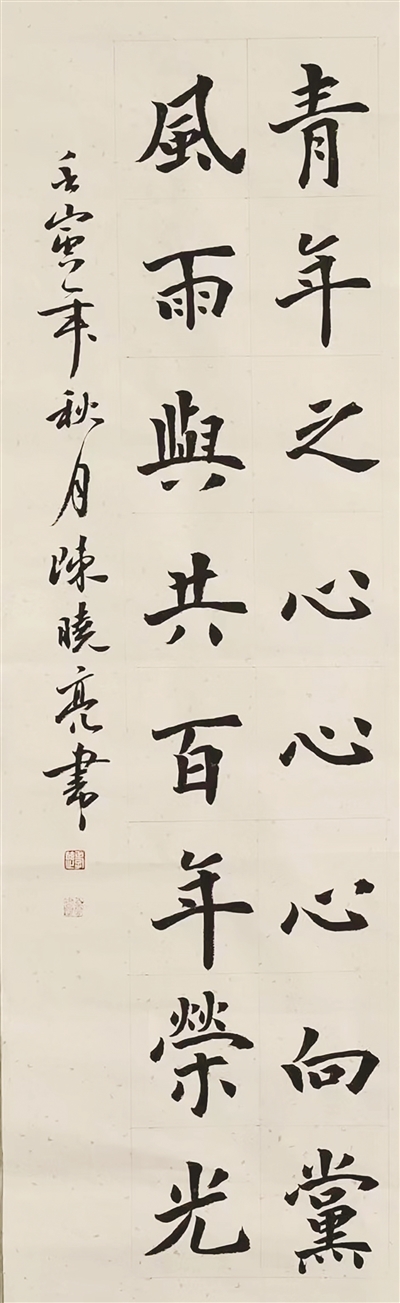 青年之心心心向黨
風雨與共百年榮光
壬寅年秋月陳曉亮書